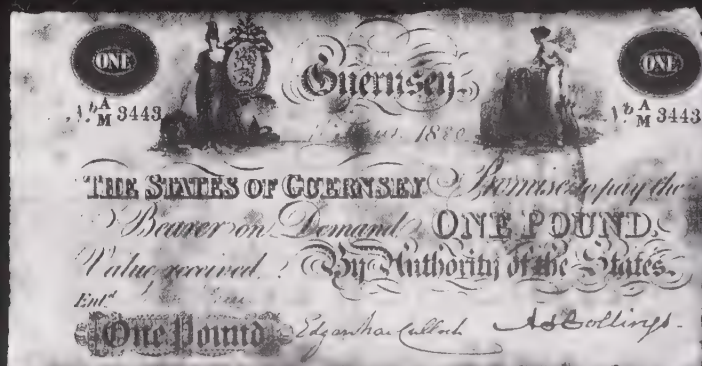 ONE ONE
Guernsey.
No. A/M 3443 No. A/M 3443
1880
THE STATES OF GUERNSEY Promise to pay the
Bearer on Demand ONE POUND.
Value received. By Authority of the States.
Entd
One Pound Edgar MacCulloch A S Collings.